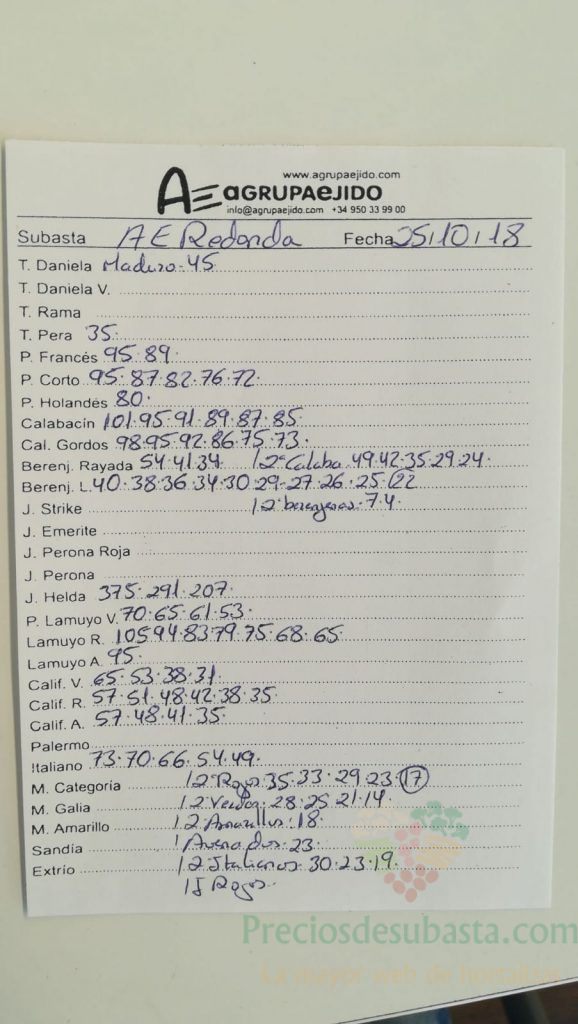 www.agrupaejido.com
AGRUPAEJIDO
info@agrupaejido.com +34 950 33 99 00
Subasta A E Redonda Fecha 05/10/18
T. Daniela Maduro 45
T. Daniela V.
T. Rama
T. Pera 35
P. Francés 95·89
P. Corto 95·87·82·76·72
P. Holandés 80
Calabacín 101·95·91·89·87·85
Cal. Gordos 98·95·92·86·75·73
Berenj. Rayada 54·41·34 12ª Calaba 49·42·35·29·24
Berenj. L. 40·38·36·34·30·29·27·26·25·22
J. Strike 12ª berenjenas 7·4
J. Emerite
J. Perona Roja
J. Perona
J. Helda 375·291·207
P. Lamuyo V. 70·65·61·53
Lamuyo R. 105·94·83·79·75·68·65
Lamuyo A. 95
Calif. V. 65·53·38·31
Calif. R. 57·51·48·42·38·35
Calif. A. 57·48·41·35
Palermo
Italiano 73·70·66·54·49
M. Categoría 12ª Rojos 35·33·29·23·17
M. Galia 12 Verdes 28·25·21·14
M. Amarillo 12 Amarillos 18
Sandía 23
Extrio 12 Italianos 30·23·19
Rojos
Preciosdesubasta.com
La mayor web de hortalizas